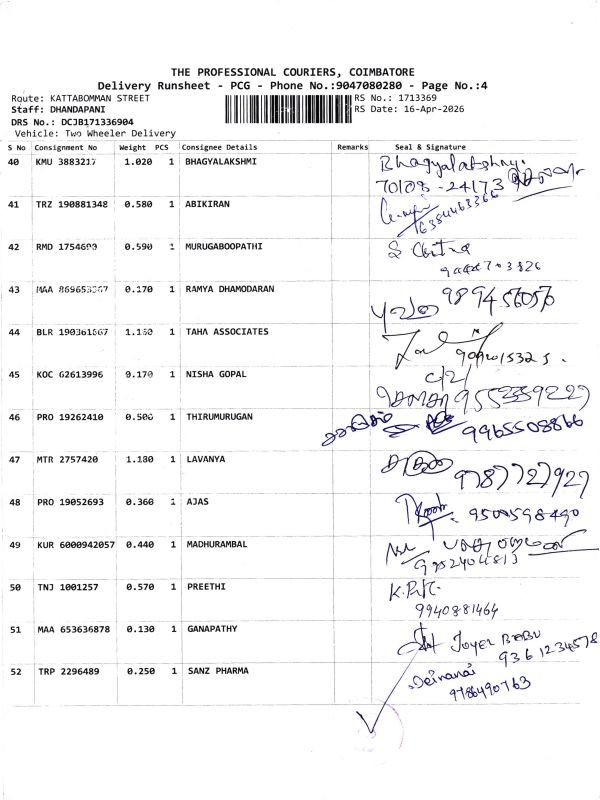 THE PROFESSIONAL COURIERS, COIMBATORE
Delivery Runsheet - PCG - Phone No.:9047080280 - Page No.:4
Route: KATTABOMMAN STREET RS No.: 1713369
Staff: DHANDAPANI RS Date: 16-Apr-2026
DRS No.: DCJB171336904
Vehicle: Two Wheeler Delivery
S No Consignment No Weight PCS Consignee Details Remarks Seal & Signature
40 KMU 3883217 1.020 1 BHAGYALAKSHMI Bhagyalakshmy.
70108-24173
41 TRZ 190881348 0.580 1 ABIKIRAN
16384463366
42 RMD 1754690 0.590 1 MURUGABOOPATHI
43 MAA 0.170 1 RAMYA DHAMODARAN 989456056
44 BLR 1.150 1 TAHA ASSOCIATES
45 KOC 62613996 0.170 1 NISHA GOPAL C/2/
9552359227
46 PRO 19262410 0.500 1 THIRUMURUGAN 9965508866
47 MTR 2757420 1.180 1 LAVANYA
9787727927
48 PRO 19052693 0.360 1 AJAS 9500598490
49 KUR 6000942057 0.440 1 MADHURAMBAL
9952404813
50 TNJ 1001257 0.570 1 PREETHI
9940881464
51 MAA 653636878 0.130 1 GANAPATHY JOYEL BABU
9361234578
52 TRP 2296489 0.250 1 SANZ PHARMA
9786490763